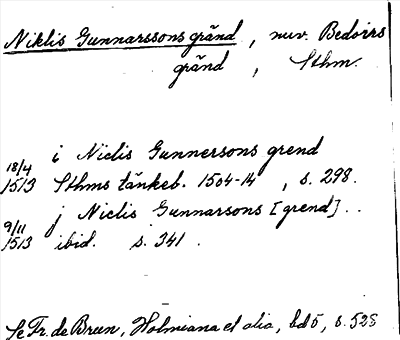 Niklis Gunnarssons gränd, nuv. Bedoirs
gränd, Sthm.
i Niclis Gunnersons grend
18/4 1513 Sthms tänkeb. 1504-14, s. 298.
j Niclis Gunnarsons [grend]..
9/11 1513 ibid. s. 341.
Se Fr. de Brun, Holmiana et alia, bd 5, s. 528